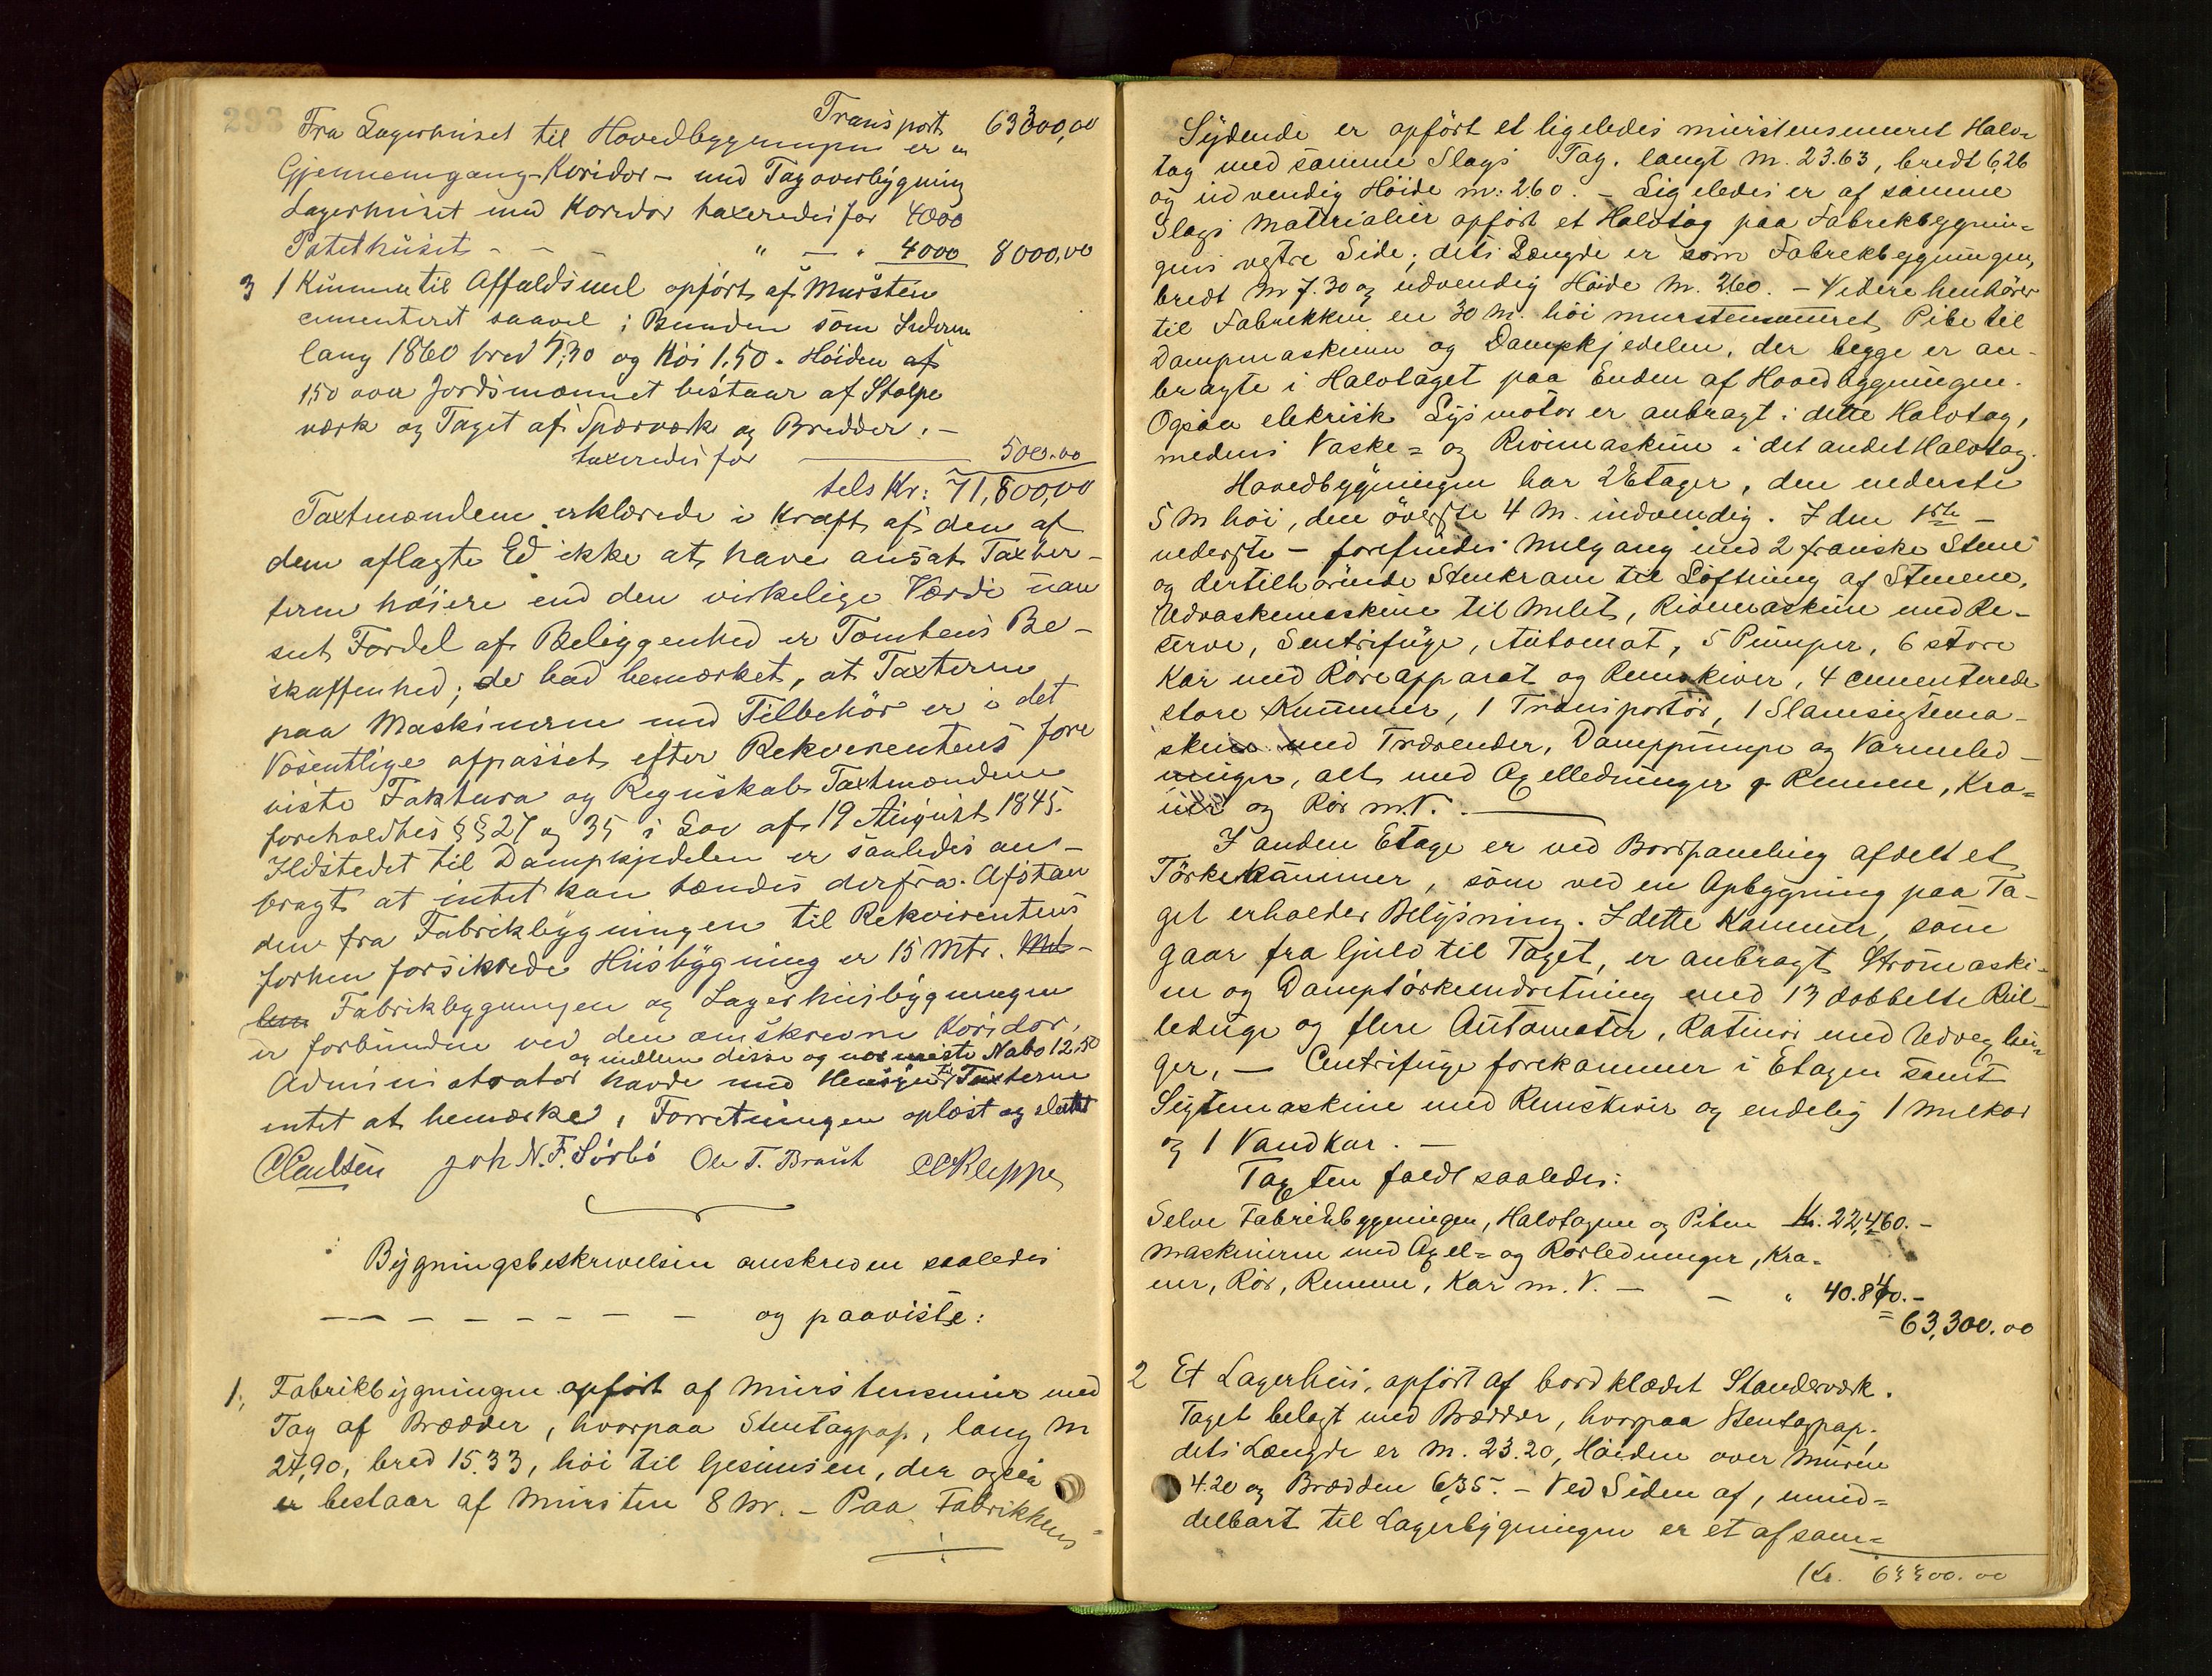 293
Transport 63300,00
Fra Lagerhuset til Hovedbygningen er en
Gjennemgang-Koridor- med Tagoverbygning
Lagerhuset med Koridor taxeredes for 4000
Potethuset - - " — " 4000 8000,00
3 1 Kumme til Affaldsmel opført af Mursten
cementeret saavel i Bunden som Siderne
lang 1860 bred 7,30 og Høi 1,50. Høiden af
1,50 over Jordsmonnet bestaar af Stolpe
værk og Taget af Spærværk og Brædder. –
taxeredes for ——— 500.00
tels Kr: 71,800,00
Taxtmændene erklærede i Kraft af den af
dem aflagte Ed ikke at have ansat Taxter-
terne høiere end den virkelige Værdi uan
seet Fordel af Beliggenhed er Tomtens Be-
skaffenhed; de bad bemærket, at Taxterne
paa Maskinerne med Tilbehör er i det
Væsentlige afpasset efter Rekvirentens fore
viste Faktura og Regnskab. Taxtmændene
foreholdtes §§ 27 og 35 i Lov af 19 August 1845.
Ildstedet til Dampkjedelen er saaledes an-
bragt at intet kan tændes derfra. Afstan
den fra Fabrikbygningen til Rekvirentens
forhen forsikrede Husbygning er 15 Mtr. Mel-
lem Fabrikbygningen og Lagerhusbygningen
er forbunden ved den omskrevne Koridor,
og mellem disse og nærmeste Nabo 12,50
Administrator havde med Hensyn til Taxterne
intet at bemærke. Forretningen oplæst og sluttet
C Paulsen Joh N. F. Sörbö Ole T. Braut CC Kleppe
Bygningsbeskrivelsen omskreven saaledes
— — — — — — — og paaviste:
1, Fabrikbygningen opført af Murstensmur med
Tag af Brædder, hvorpaa Stentagpap, lang M
27,90, bred 15.33, høi til Gesimsen, der ogsaa
er bestaar af Mursten 8 Mr. – Paa Fabrikkens
Sydende er opført et ligeledes murstensmuret Halv=
tag med samme Slags Tag. langt M. 23.63, bredt 6,26
og udvendig Höide M. 2.60. – Ligeledes er af samme
Slags Materialier opført et Halvtag paa Fabrikbygnin=
gens vestre Side; dets Længde er som Fabrikbygningen,
bredt M 7.30 og udvendig Høide M. 2.60. – Videre henhører
til Fabrikken en 30 M. høi murstensmuret Pibe til
Dampmaskinen og Dampkjedelen, der begge er an-
bragte i Halvtaget paa Enden af Hovedbygningen.
Ogsaa elekrisk Lysmotor er anbragt i dette Halvtag,
medens Vaske= og Rivemaskine i det andet Halvtag.
Hovedbygningen har 2 Etager, den nederste
5 M høi, den øverste 4 M. indvendig. I den 1ste –
nederste – forefindes Melgang med 2 franske Stene
og dertilhörende Stenkran til Löftning af Stenene,
Udvaskemaskine til Melet, Rivemaskine med Re-
serve, Sentrifuge, Automat, 5 Pumper, 6 store
Kar med Röreapparat og Remskiver, 4 cementerede
store Kummer, 1 Transportør, 1 Slamsigtema-
skine med Trærender, Damppumpe og Varmeled-
ninger, alt med Axelledninger og Remme, Kra=
ner og Rör m.V. ———
I anden Etage er ved Bordpaneling afdelt et
Törkekammer, som ved en Opbygning paa Ta-
get erholder Belysning. I dette Kammer, som
gaar fra Gulv til Taget, er anbragt
og Damptörkeindretning med 13 dobbelte Rul-
leduge og flere Automater,
ger, — Centrifuge forekammer i Etagen samt
Sigtemaskine med Remskiver og endelig 1 Melkar
og 1 Vandkar. —
Taxten faldt saaledes:
Selve Fabrikbygningen, Halvtagene og Piben Kr. 22,460. –
Maskinerne med Axel= og Rørledninger, Kra=
ner, Rör, Remme, Kar m. V. — — " 40.840. –
= 63,300.00
2 Et Lagerhus, opført af bordklædt Standerværk.
Taget belagt med Brædder, hvorpaa Stentagpap.
dets Længde er M. 23.20, Høiden over Muren
4.20 og Bredden 6,35. – Ved Siden af, umid=
delbart til Lagerbygningen er et af sam=
Kr. 63300.00